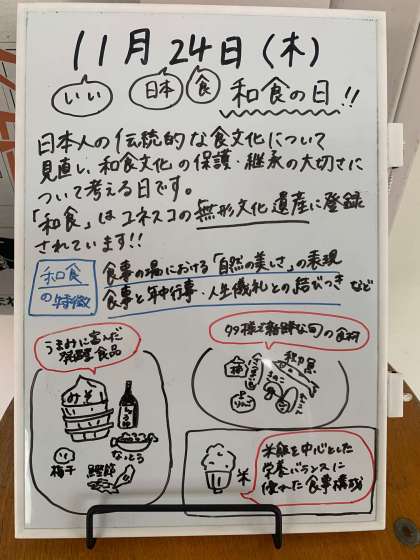 11月24日(木)
いい 日本 食 和食の日!!
日本人の伝統的な食文化について
見直し、和食文化の保護・継承の大切さに
ついて考える日です。
「和食」はユネスコの無形文化遺産に登録
されています!!
和食の特徴
食事の場における「自然の美しさ」の表現
食事と年中行事・人生儀礼との結びつき など
うまみに富んだ
発酵食品
みそ
なっとう
梅干
鰹節
多様で新鮮な旬の食材
柿
きのこ
米
米飯を中心とした
栄養バランスに
優れた食事構成